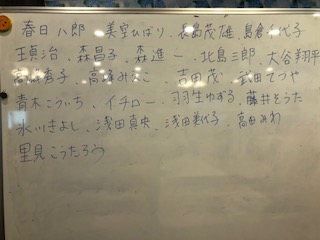 春日八郎 美空ひばり、長島茂雄 島倉千代子
王真治、森昌子、森進一、北島三郎、大谷翔平
高峰秀子、高峰みえこ、吉田茂、武田てつや
青木こういち、イチロー、羽生ゆずる、藤井そうた
氷川きよし、浅田真央、浅田美代子、高田みわ
里見こうたろう